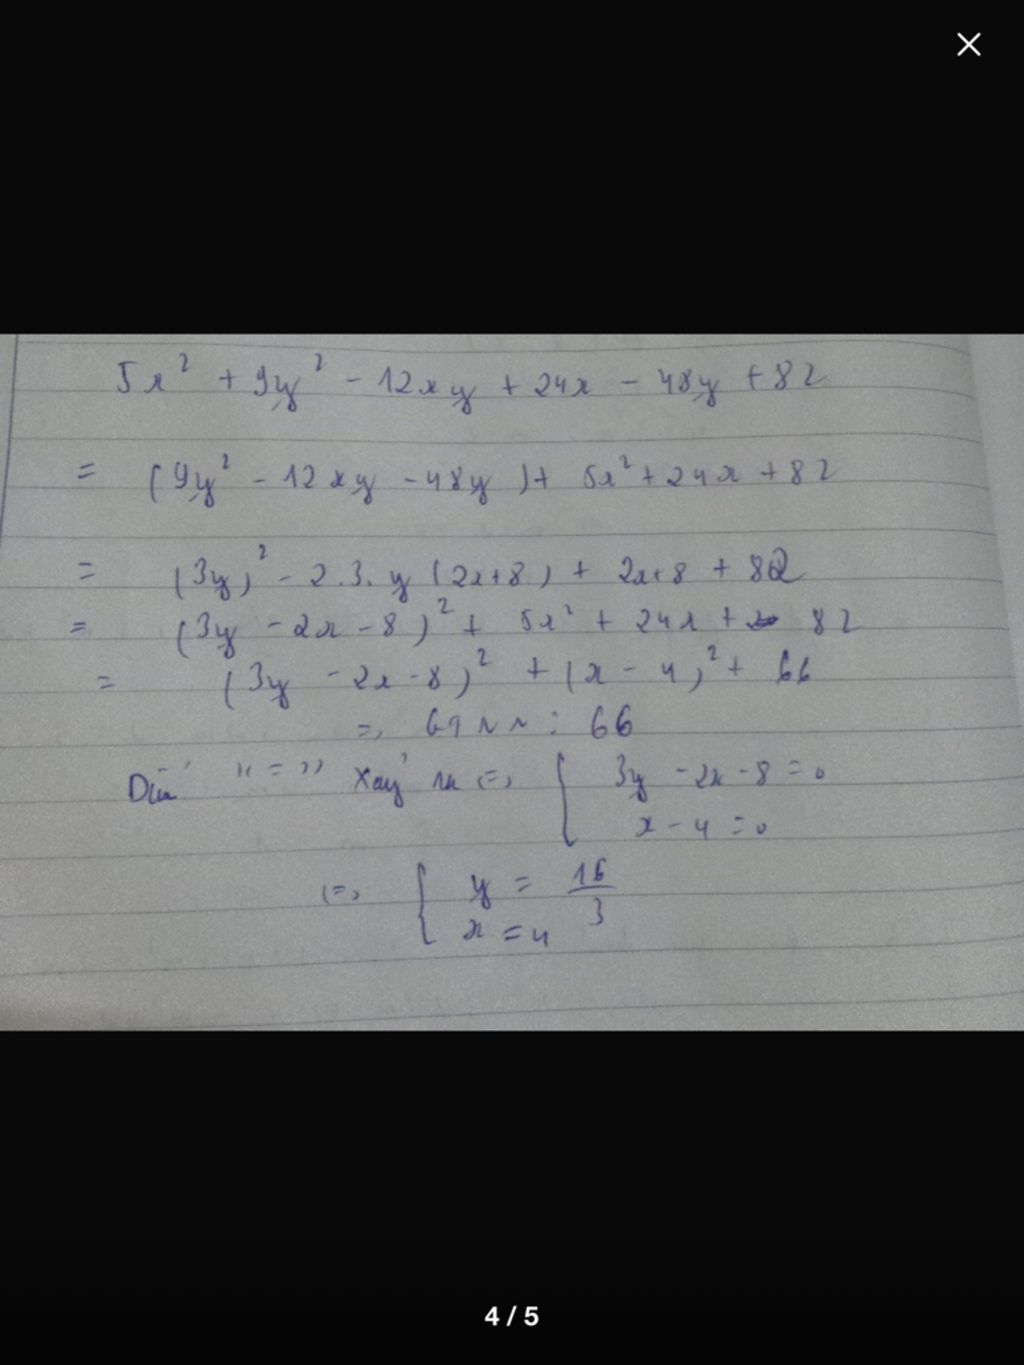 5x² + 9y² - 12xy + 24x - 48y + 82
= (9y² - 12xy - 48y) + 5x² + 24x + 82
= (3y)² - 2.3.y (2x+8) + 2x+8 + 82
= (3y - 2x - 8)² + 5x² + 24x + 82
= (3y - 2x - 8)² + (x - 4)² + 66
=> GTNN : 66
Dấu "=" xảy ra <=> { 3y - 2x - 8 = 0
x - 4 = 0
<=> { y = 16/3
x = 4
4 / 5